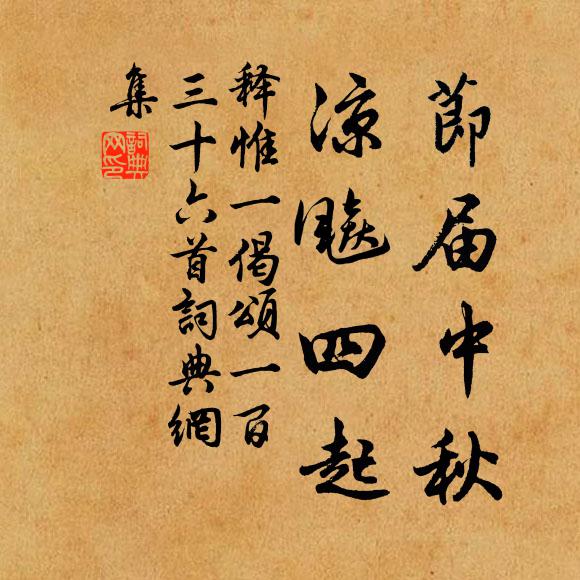 節届中秋
涼飈四起
释惟一偈頌一百
三十六首詞典網
集
詞典
网印